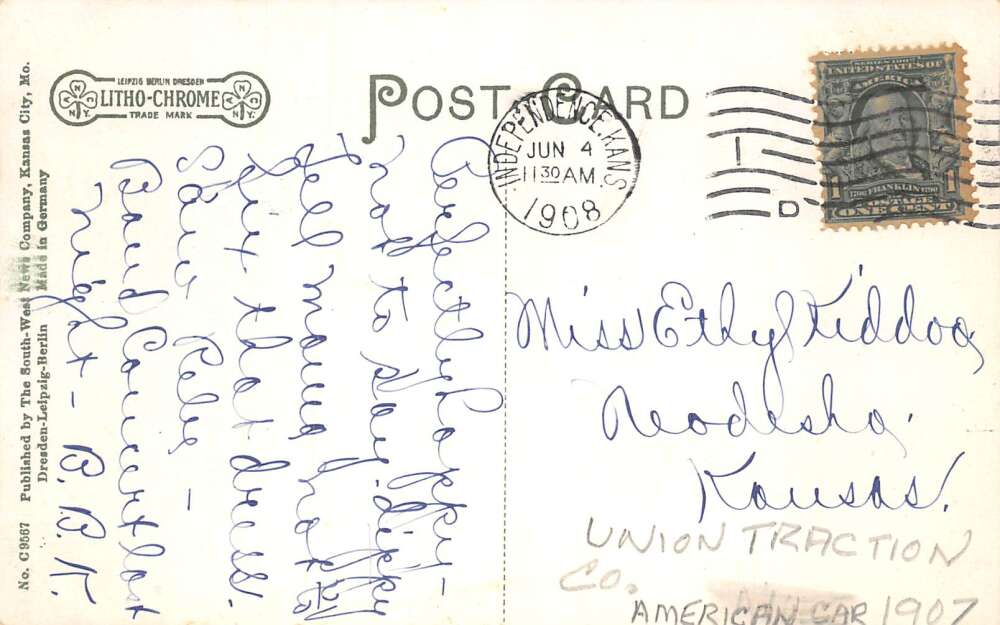 No. C9567 Published by The South-West News Company, Kansas City, Mo.
Dresden-Leipzig-Berlin Made in Germany
LEIPZIG BERLIN DRESDEN
LITHO-CHROME
TRADE MARK
POST CARD
INDEPENDENCE, KANS.
JUN 4
11 30 AM
1908
D
SERIES 1902
UNITED STATES OF
AMERICA
1 1
1706 FRANKLIN 1790
POSTAGE
ONE CENT
Perfectly happy -
not to say dippy
Tell mama not to
let that dress.
Sour Pele -
Band Concert last
night - B. B. K.
Miss Ethyl Kiddoo,
Neodesha.
Kansas.
UNION TRACTION
CO.
AMERICAN CAR 1907